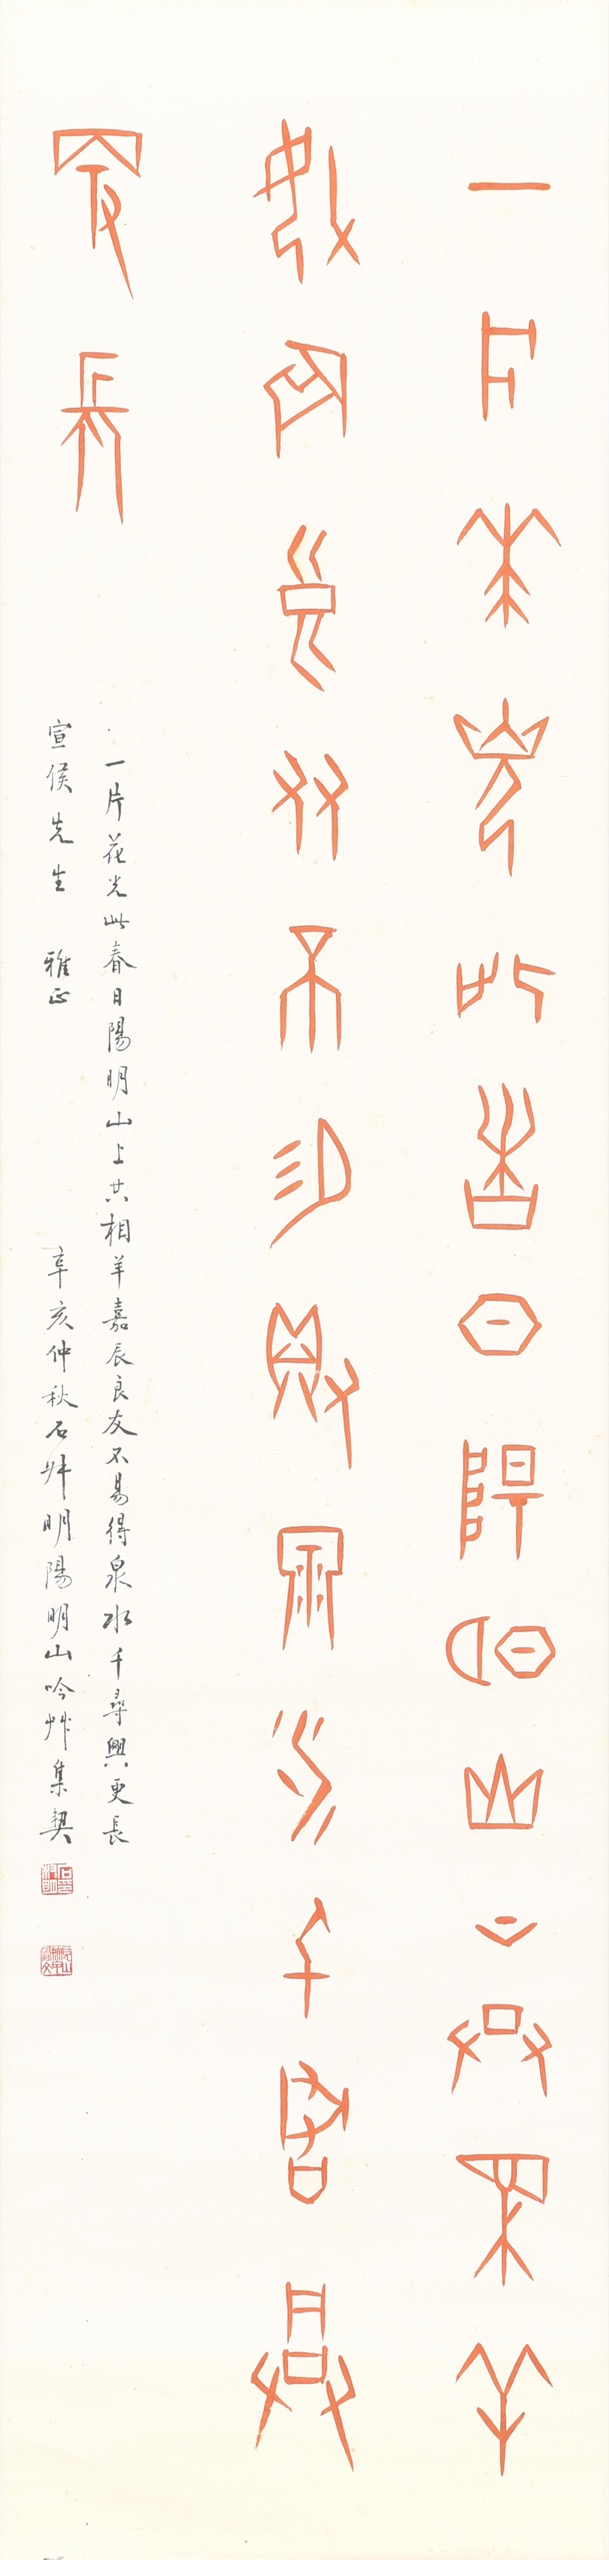 一片花光此春日陽明山上共相羊
嘉辰良友不易得泉水千尋興
更長
一片花光此春日陽明山上共相羊嘉辰良友不易得泉水千尋興更長
宣侯先生 雅正
辛亥仲秋石叔明陽明山吟艸集契